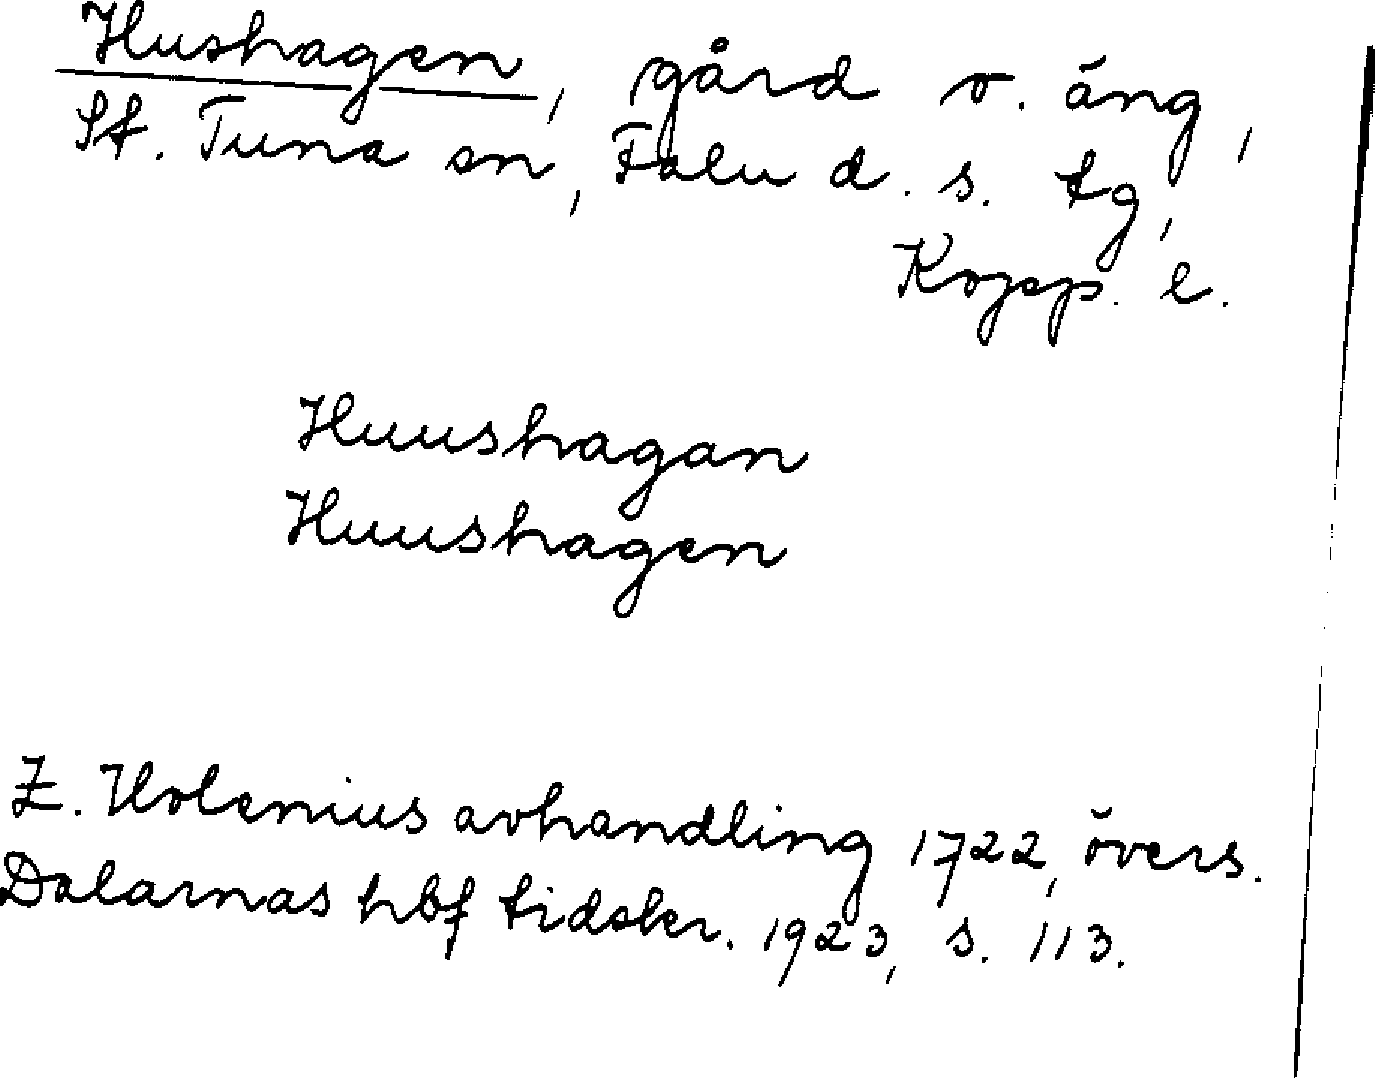 Hushagen, gård o. äng,
St. Tuna sn, Falu d. s. tg,
Kopp. l.
Huushagan
Huushagen
Z. Holenius avhandling 1722, övers.
Dalarnas hbf tidskr. 1923, s. 113.